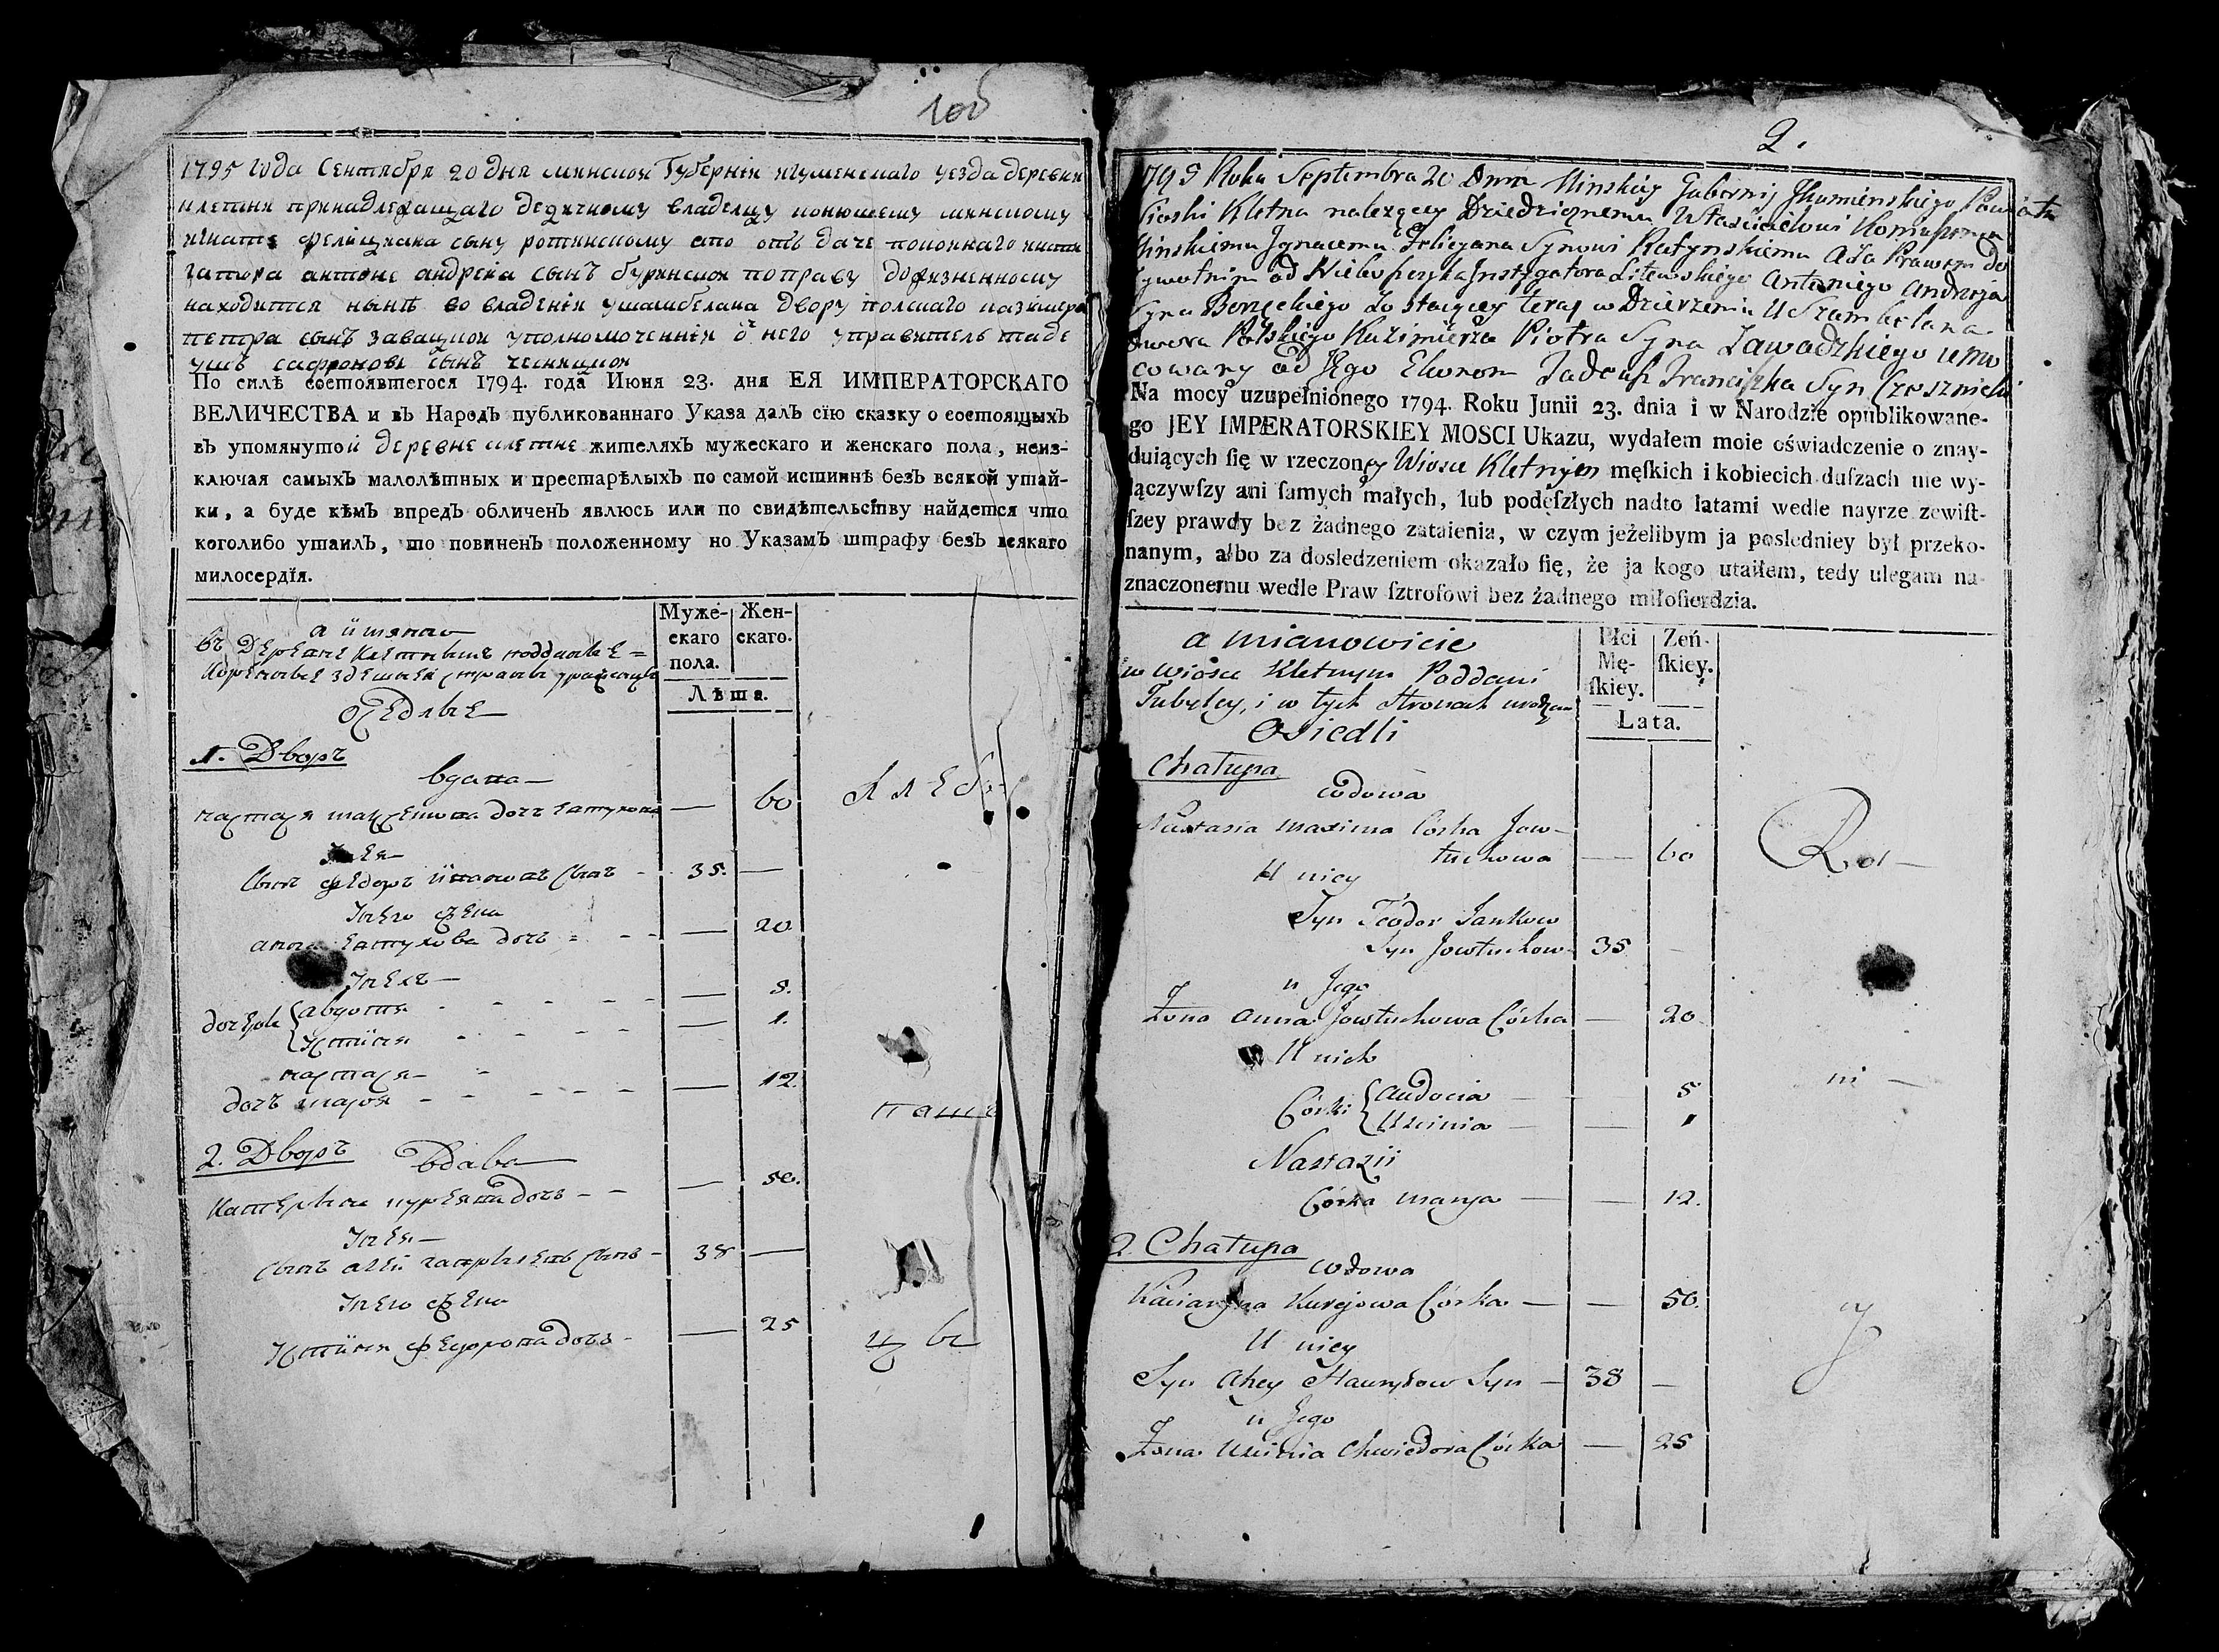 100
1795 года Сентября 20 дня минской Губернїи игуменскаго уезда деревни
клетни принадлежащаго дедичному владелцу конюшему минскому
игнате фелицияна сыну ротинскому або отъ даче покойнаго инсти
гатора антоне андрея сынъ буринской по праву дожизненному
находится нынѣ во владенїи у шамбелана двору полскаго казимера
петра сынъ завацкой уполномоченнїй от него управитель таде
ушъ сафронове сынъ
По силѣ состоявшегося 1794. года Июня 23. дня ЕЯ ИМПЕРАТОРСКАГО
ВЕЛИЧЕСТВА и въ Народъ публикованнаго Указа далъ сїю сказку о состоящыхъ
въ упомянутой деревне клетне жителяхъ мужескаго и женскаго пола, неиз-
ключая самыхъ малолѣтных и престарѣлыхъ по самой истиннѣ безъ всякой утай-
ки, а буде кѣмъ впредь обличенъ явлюсь или по свидѣтельству найдется что
коголибо утаилъ, то повиненъ положенному по Указамъ штрафу безъ всякаго
милосердїя.
а имянно
въ деревне Клетныще подданые
коренные здешней страны
оседлые
Муже-
скаго
пола.
Жен-
скаго.
Лѣта.
1. Дворъ
вдова
настася максимова дочъ евтухова — 60
У нея
сынъ федоръ иванов сынъ - 35. —
У него жена
анна евтухова дочъ - — 20
У нихъ
дочери авдотя — 8.
устиня — 1.
настася
дочъ маря — 12.
2. Дворъ
вдова
катерина куреява дочъ — 50.
У нея
сынъ агей гаврилевъ сынъ - 38 —
У него жена
устиня федорова дочъ - — 25
2.
1795 Roku Septembra 20 Dnia Minskiey Gubernij Jhumenskiego Powiatu
Wioski Kletna należącey Dziedzicznemu Właścicielowi Koniuszemu
Minskiemu Jgnacemu Felicyana Synowi Ratynskiemu A Za Prawem do
żywotnim od Nieboszczyka Jnstygatora Litewskiego Antoniego Andrzeja
Syna Borzęckiego Zostaiącey teraz w Dzierżeniu U Szambelana
dwora Polskiego Kazimierza Piotra Syna Zawadzkiego umo
cowany od Jego Ekonom Tadeusz Franciszka Syn Czesznicki
Na mocy uzupełnionego 1794. Roku Junii 23. dnia i w Narodzie opublikowane-
go JEY IMPERATORSKIEY MOSCI Ukazu, wydałem moie oświadczenie o znay-
duiących się w rzeczoney Wiosce Kletnym męskich i kobiecich duszach nie wy-
łączywszy ani samych małych, lub podeszłych nadto latami wedle nayrze zewist-
szey prawdy bez żadnego zataienia, w czym jeżelibym ja posledniey był przeko-
nanym, albo za dosledzeniem okazało się, że ja kogo utaiłem, tedy ulegam na-
znaczonemu wedle Praw sztrofowi bez żadnego miłosierdzia.
a mianowicie
w wiosce Kletnym Poddani
Tubylcy, i w tych Stronach urodzeni
Osiedli
Płci
Mę-
skiey.
Zeń-
skiey.
Lata.
Chałupa
wdowa
Nastazia Maxima Córka Jow-
tuchowa — 60
U niey
Syn Teodor Jankow
Syn Jowtuchow 35 —
u Jego
Żona Anna Jowtuchowa Córka — 20
U nich
Córki Audocia — 5
Uscinia — 1
Nastazii
Córka Marya — 12.
2. Chałupa
wdowa
Kaciaryna Kurejowa Córka — — 50.
U niey
Syn Ahey Hauryłow Syn — 38 —
u Jego
Żona Uscinia Chwiedora Córka — 25